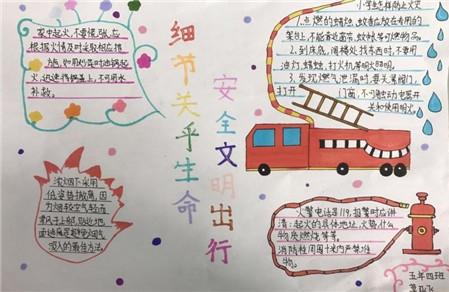 家中起火,不要慌张,应
根据火情及时采取相应措
施,如用炒菜时油锅起
火,迅速将锅盖上,不可用水
补救。
细节关乎生命
安全文明出行
小学生怎样防止火灾
1. 点燃的蜡烛,蚊香应放在专用的
架上,不能靠近窗帘,蚊帐等可燃物品。
2. 到床底,阁楼处找东西时,不要用
油灯,蜡烛,打火机等明火照明。
3. 发现燃气泄漏时,要关紧阀门,
打开门窗,不可触动电器开
关和使用明火
浓烟下采用
低姿势撤离,因
为烟较空气轻而
飘浮于上部,贴近地
面逃离是避免烟气
吸入的最佳方法。
火警电话是119,报警时应讲
清:起火的具体地址,火势,什么
物质燃烧等等。
消防栓周围十米内严禁堆
物。
五年四班